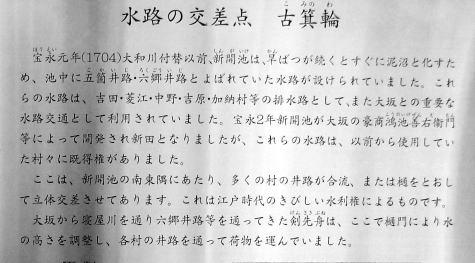 水路の交差点　古箕輪
宝永元年(1704)大和川付替以前、新開池は、早ばつが続くとすぐに泥沼と化すた
め、池中に五箇井路・六郷井路とよばれていた水路が設けられていました。これ
らの水路は、吉田・菱江・中野・吉原・加納村等の排水路として、また大坂との重要な
水路交通として利用されていました。宝永2年新開池が大坂の豪商鴻池善右衛門
等によって開発され新田となりましたが、これらの水路は、以前から使用してい
た村々に既得権がありました。
ここは、新開池の南東隅にあたり、多くの村の井路が合流、または樋をとおし
て立体交差させてあります。これは江戸時代のきびしい水利権によるものです。
大坂から寝屋川を通り六郷井路等を通ってきた剣先舟は、ここで樋門により水
の高さを調整し、各村の井路を通って荷物を運んでいました。